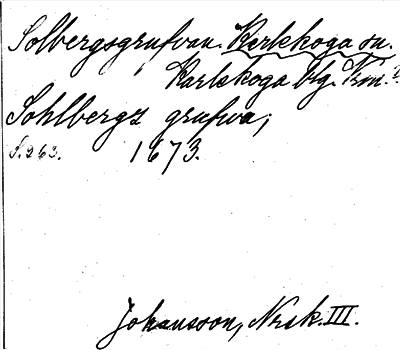 Solbergsgrufvan. Karlskoga sn.
Karlskoga bg. Vrm.
Sohlbergz grufwa;
S. 263. 1673.
Johansson, Norsk. III.